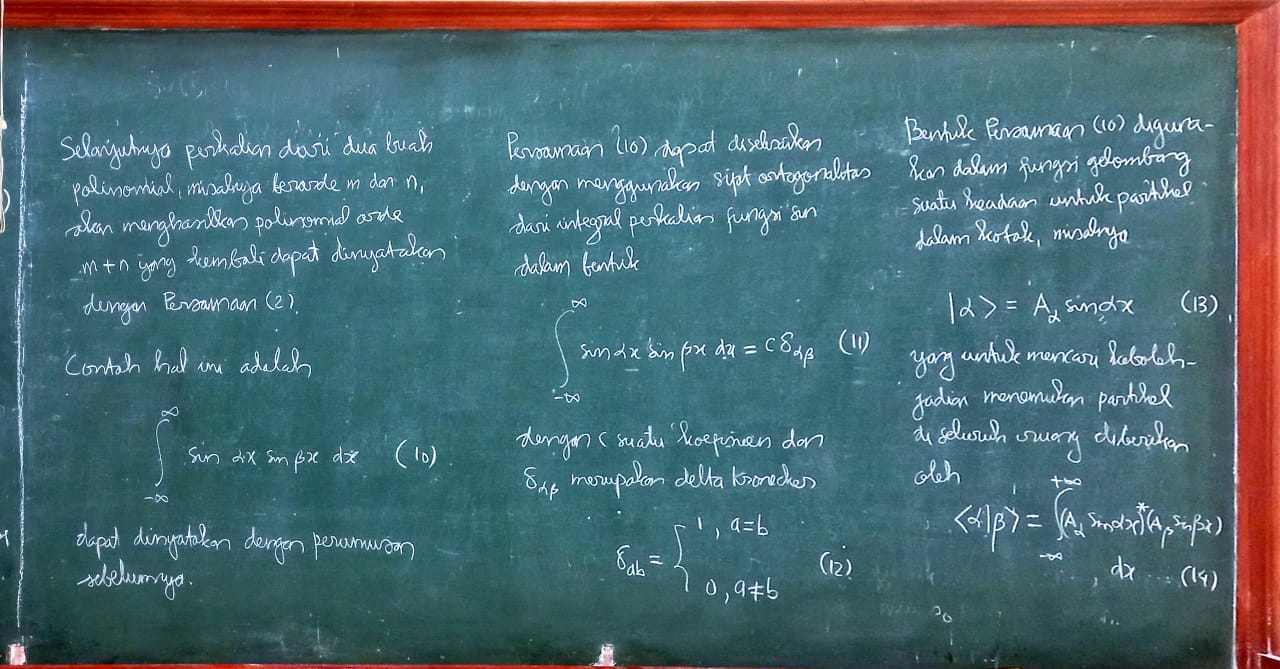 Selanjutnya perkalian dari dua buah
polinomial, misalnya berorde m dan n,
akan menghasilkan polinomial orde
m+n yang kembali dapat dinyatakan
dengan Persamaan (2).
Contoh hal ini adalah
∫_{-∞}^{∞} sin αx sin βx dx (10)
dapat dinyatakan dengan perumusan
sebelumnya.
Persamaan (10) dapat diselesaikan
dengan menggunakan sifat ortogonalitas
dari integral perkalian fungsi sin
dalam bentuk
∫_{-∞}^{∞} sin αx sin βx dx = C δ_{αβ} (11)
dengan C suatu koefisien dan
δ_{αβ} merupakan delta Kronecker
δ_{ab} = { 1, a=b
0, a≠b (12)
Bentuk Persamaan (10) diguna-
kan dalam fungsi gelombang
suatu keadaan untuk partikel
dalam kotak, misalnya
|α> = A_α sin αx (13)
yang untuk mencari keboleh-
jadian menemukan partikel
di seluruh ruang diberikan
oleh
<α|β> = ∫_{-∞}^{+∞} (A_α sin αx)* (A_β sin βx)
, dx ... (14)